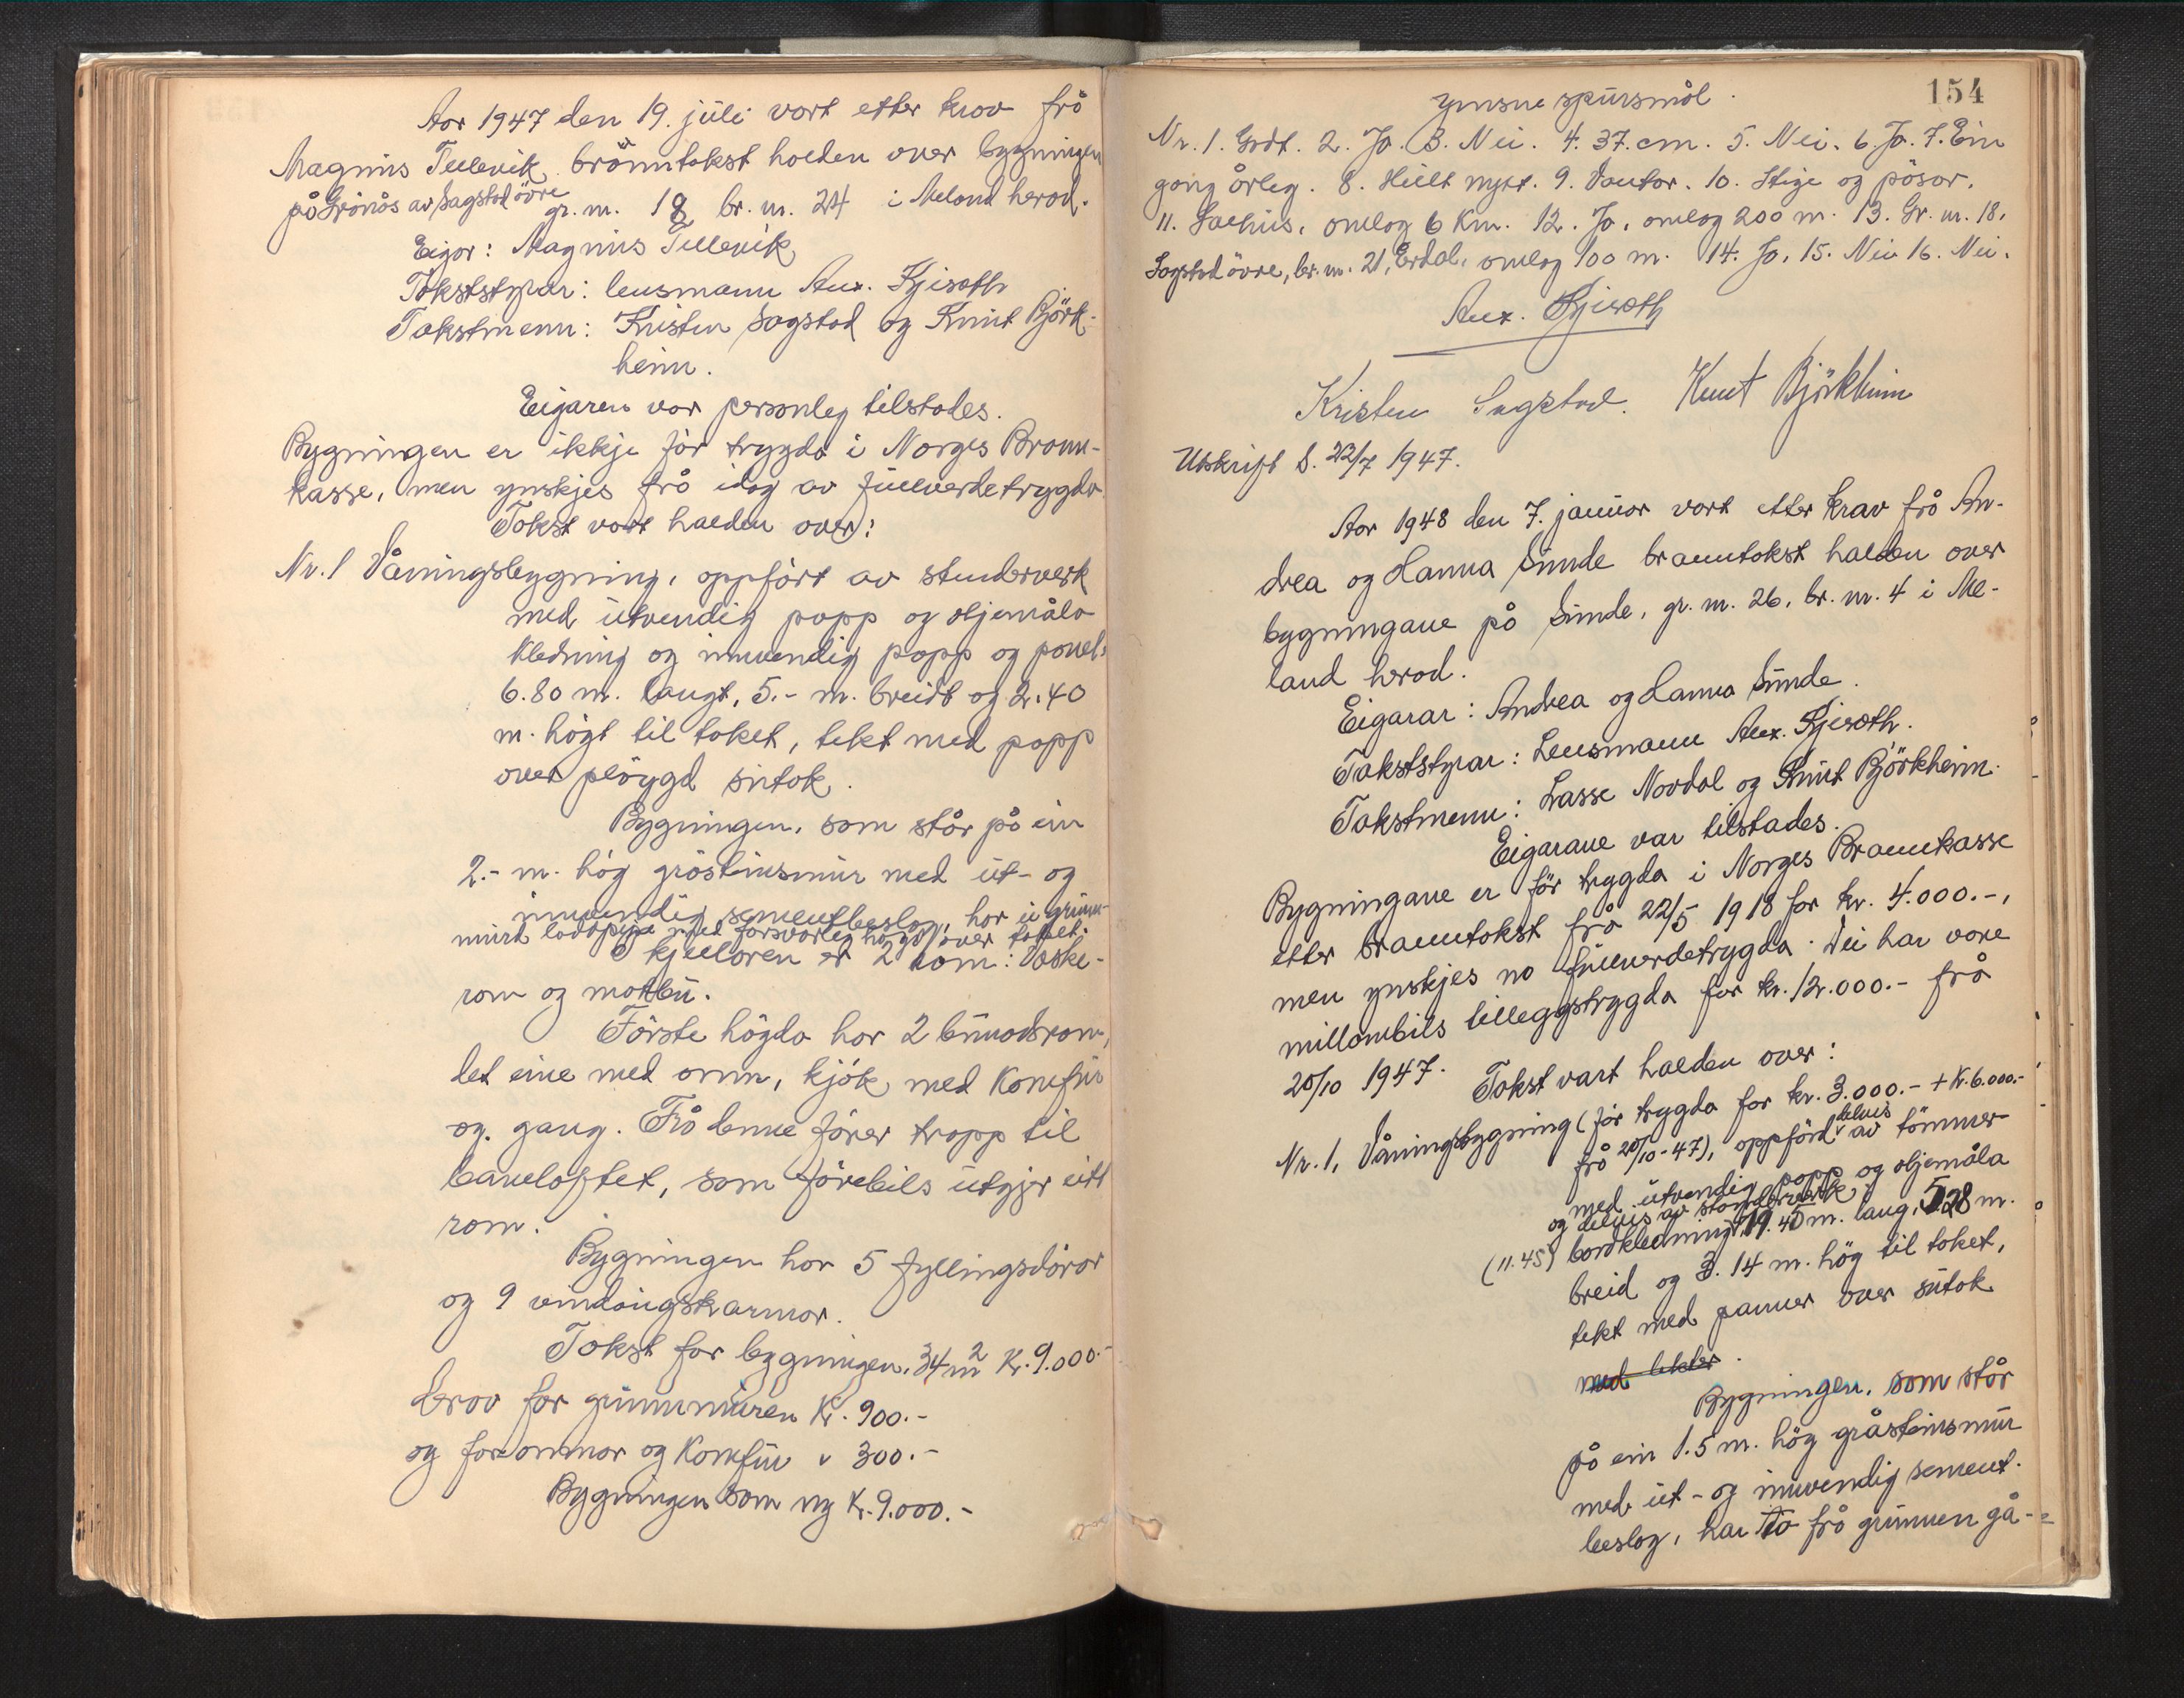 Aar 1947 den 19. juli vart etter krav frå
Magnus Tellevik branntakst halden over bygningen
på Grönås av Sagstad övre
gr. nr. 18 br. nr. 24 i Meland herad.
Eigar: Magnus Tellevik
Takststyrar: lensmann Alex. Gjisøth
Takstmenn: Kristen Sagstad og Knut Björk-
heim.
Eigaren var personleg tilstades.
Bygningen er ikkje för trygda i Norges Brann-
kasse, men ynskjes frå idag av fullverdetrygda.
Takst vart halden over:
Nr. 1 Våningsbygning, oppfört av stenderverk
med utvendig papp og oljemåla
kledning og innvendig papp og panel,
6.80 m. langt, 5.- m. breidt og 2.40
m. högt til taket, tekt med papp
over plöygd sutak.
Bygningen, som står på ein
2.- m. hög gråsteinsmur med ut- og
innvendig sementbeslag, har ei grunn-
murt lodapipe med forsvarleg högd over taket.
I kjellaren er 2 rom: Vaske-
rom og matbu.
Förste högda har 2 bunadsrom,
det eine med omn, kjök med komfur
og gang. Frå denne förer trapp til
baneloftet, som förebils utgjer eitt
rom.
Bygningen har 5 fyllingsdörar
og 9 vindaugskarmar.
Takst for bygningen, 34 m2 Kr. 9.000.-
Derav for grunnmuren Kr. 900.-
og for omnar og komfur " 300.-
Bygningen som ny Kr. 9.000.-
154
Ymsne spursmål.
Nr. 1. Godt. 2. Ja. 3. Nei. 4. 37. cm. 5. Nei. 6. Ja. 7. Ein
gong årleg. 8. Heilt nytt. 9. Vantar. 10. Stige og pösar.
11. Salhus, omlag 6 Km. 12. Ja, omlag 200 m. 13. Gr. nr. 18,
Sagstad övre, br. nr. 21, Erdal, omlag 100 m. 14. Ja. 15. Nei 16. Nei.
Alex. Gjisøth
Kristen Sagstad. Knut Björkheim
Utskrift S. 22/7 1947.
Aar 1948 den 7. januar vart etter krav frå An-
drea og Hanna Sunde branntakst halden over
bygningane på Sunde, gr. nr. 26, br. nr. 4 i Me-
land herad.
Eigarar: Andrea og Hanna Sunde.
Takststyrar: Lensmann Alex. Gjisøth.
Takstmenn: Lasse Nordal og Knut Björkheim.
Eigarane var tilstades.
Bygningane er för trygda i Norges Brannkasse
etter branntakst frå 22/5 1918 for kr. 4.000.-,
men ynskjes no fullverdetrygda. Dei har vore
millombils tilleggstrygda for kr. 12.000.- frå
20/10 1947.
Takst vart halden over:
Nr. 1, Våningsbygning (för trygda for kr. 3.000.- + Kr. 6.000.-
frå 20/10-47), oppförd delvis av tömmer
og delvis av stenderverk,
med utvendig papp og oljemåla
(11.45) bordkledning, 19.45 m. lang, 5.28 m.
breid og 3.14 m. hög til taket,
tekt med panner over sutak
med lekter.
Bygningen, som står
på ein 1.5 m. hög gråsteinsmur
med ut- og innvendig sement-
beslag, har to frå grunnen gå-